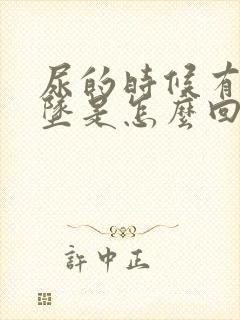 尿的時候有
墜是怎麼回
許中正